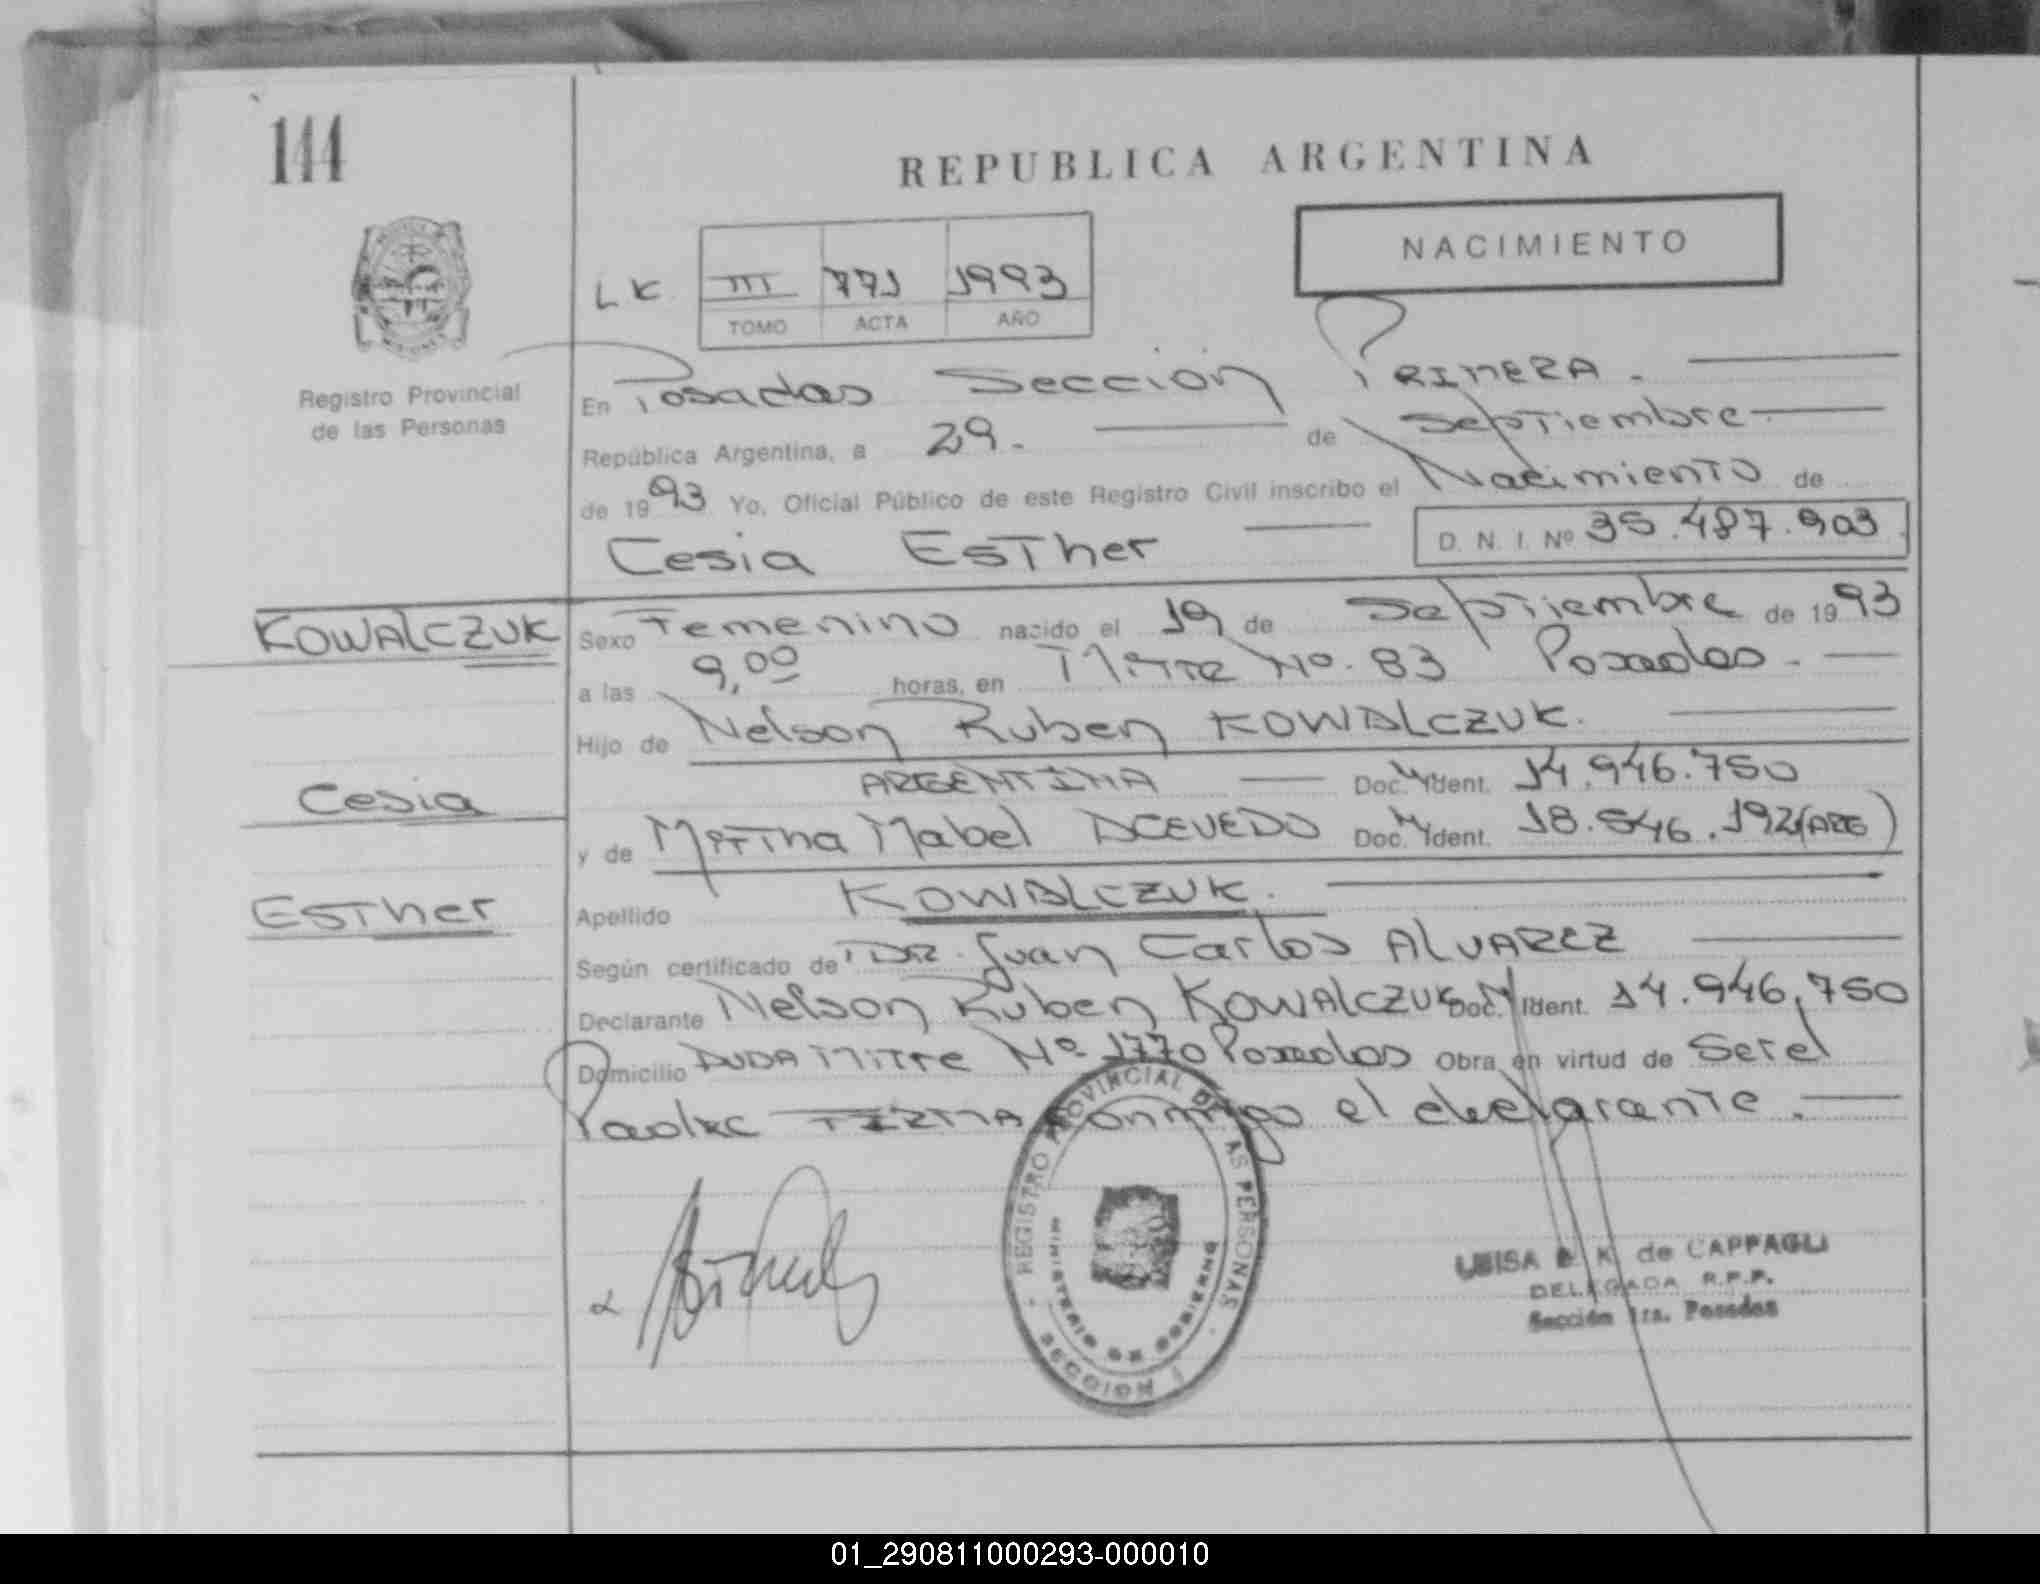 144
REPUBLICA ARGENTINA
NACIMIENTO
LK III 771 1993
TOMO ACTA AÑO
MISIONES
Registro Provincial
de las Personas
En Posadas Sección PRIMERA.
República Argentina, a 29. de Septiembre
de 1993 Yo, Oficial Público de este Registro Civil inscribo el Nacimiento de
Cesia EsTher D. N. I. Nº 35.487.903
KOWALCZUK
Sexo Femenino nacido el 19 de Septiembre de 1993
a las 9,00 horas, en Mitre Nº. 83 Posadas.
Hijo de Nelson Ruben KOWALCZUK.
Cesia
ARGENTINA Doc. Ident. 14.946.750
y de Mabel ACEVEDO Doc. Ident. 18.546.192 (ARG)
EsTher
Apellido KOWALCZUK.
Según certificado de DR. Juan Carlos ALVAREZ
Declarante Nelson Ruben KOWALCZUK Doc. Ident. 14.946.750
Domicilio Mitre Nº 1770 Posadas Obra en virtud de Ser el
Padre FIRMA Conmigo el declarante.
REGISTRO PROVINCIAL DE LAS PERSONAS
MINISTERIO DE GOBIERNO
SECCION 1
LUISA K de CAPPAGLI
DELEGADA R.P.P.
Sección 1ra. Posadas
01_290811000293-000010